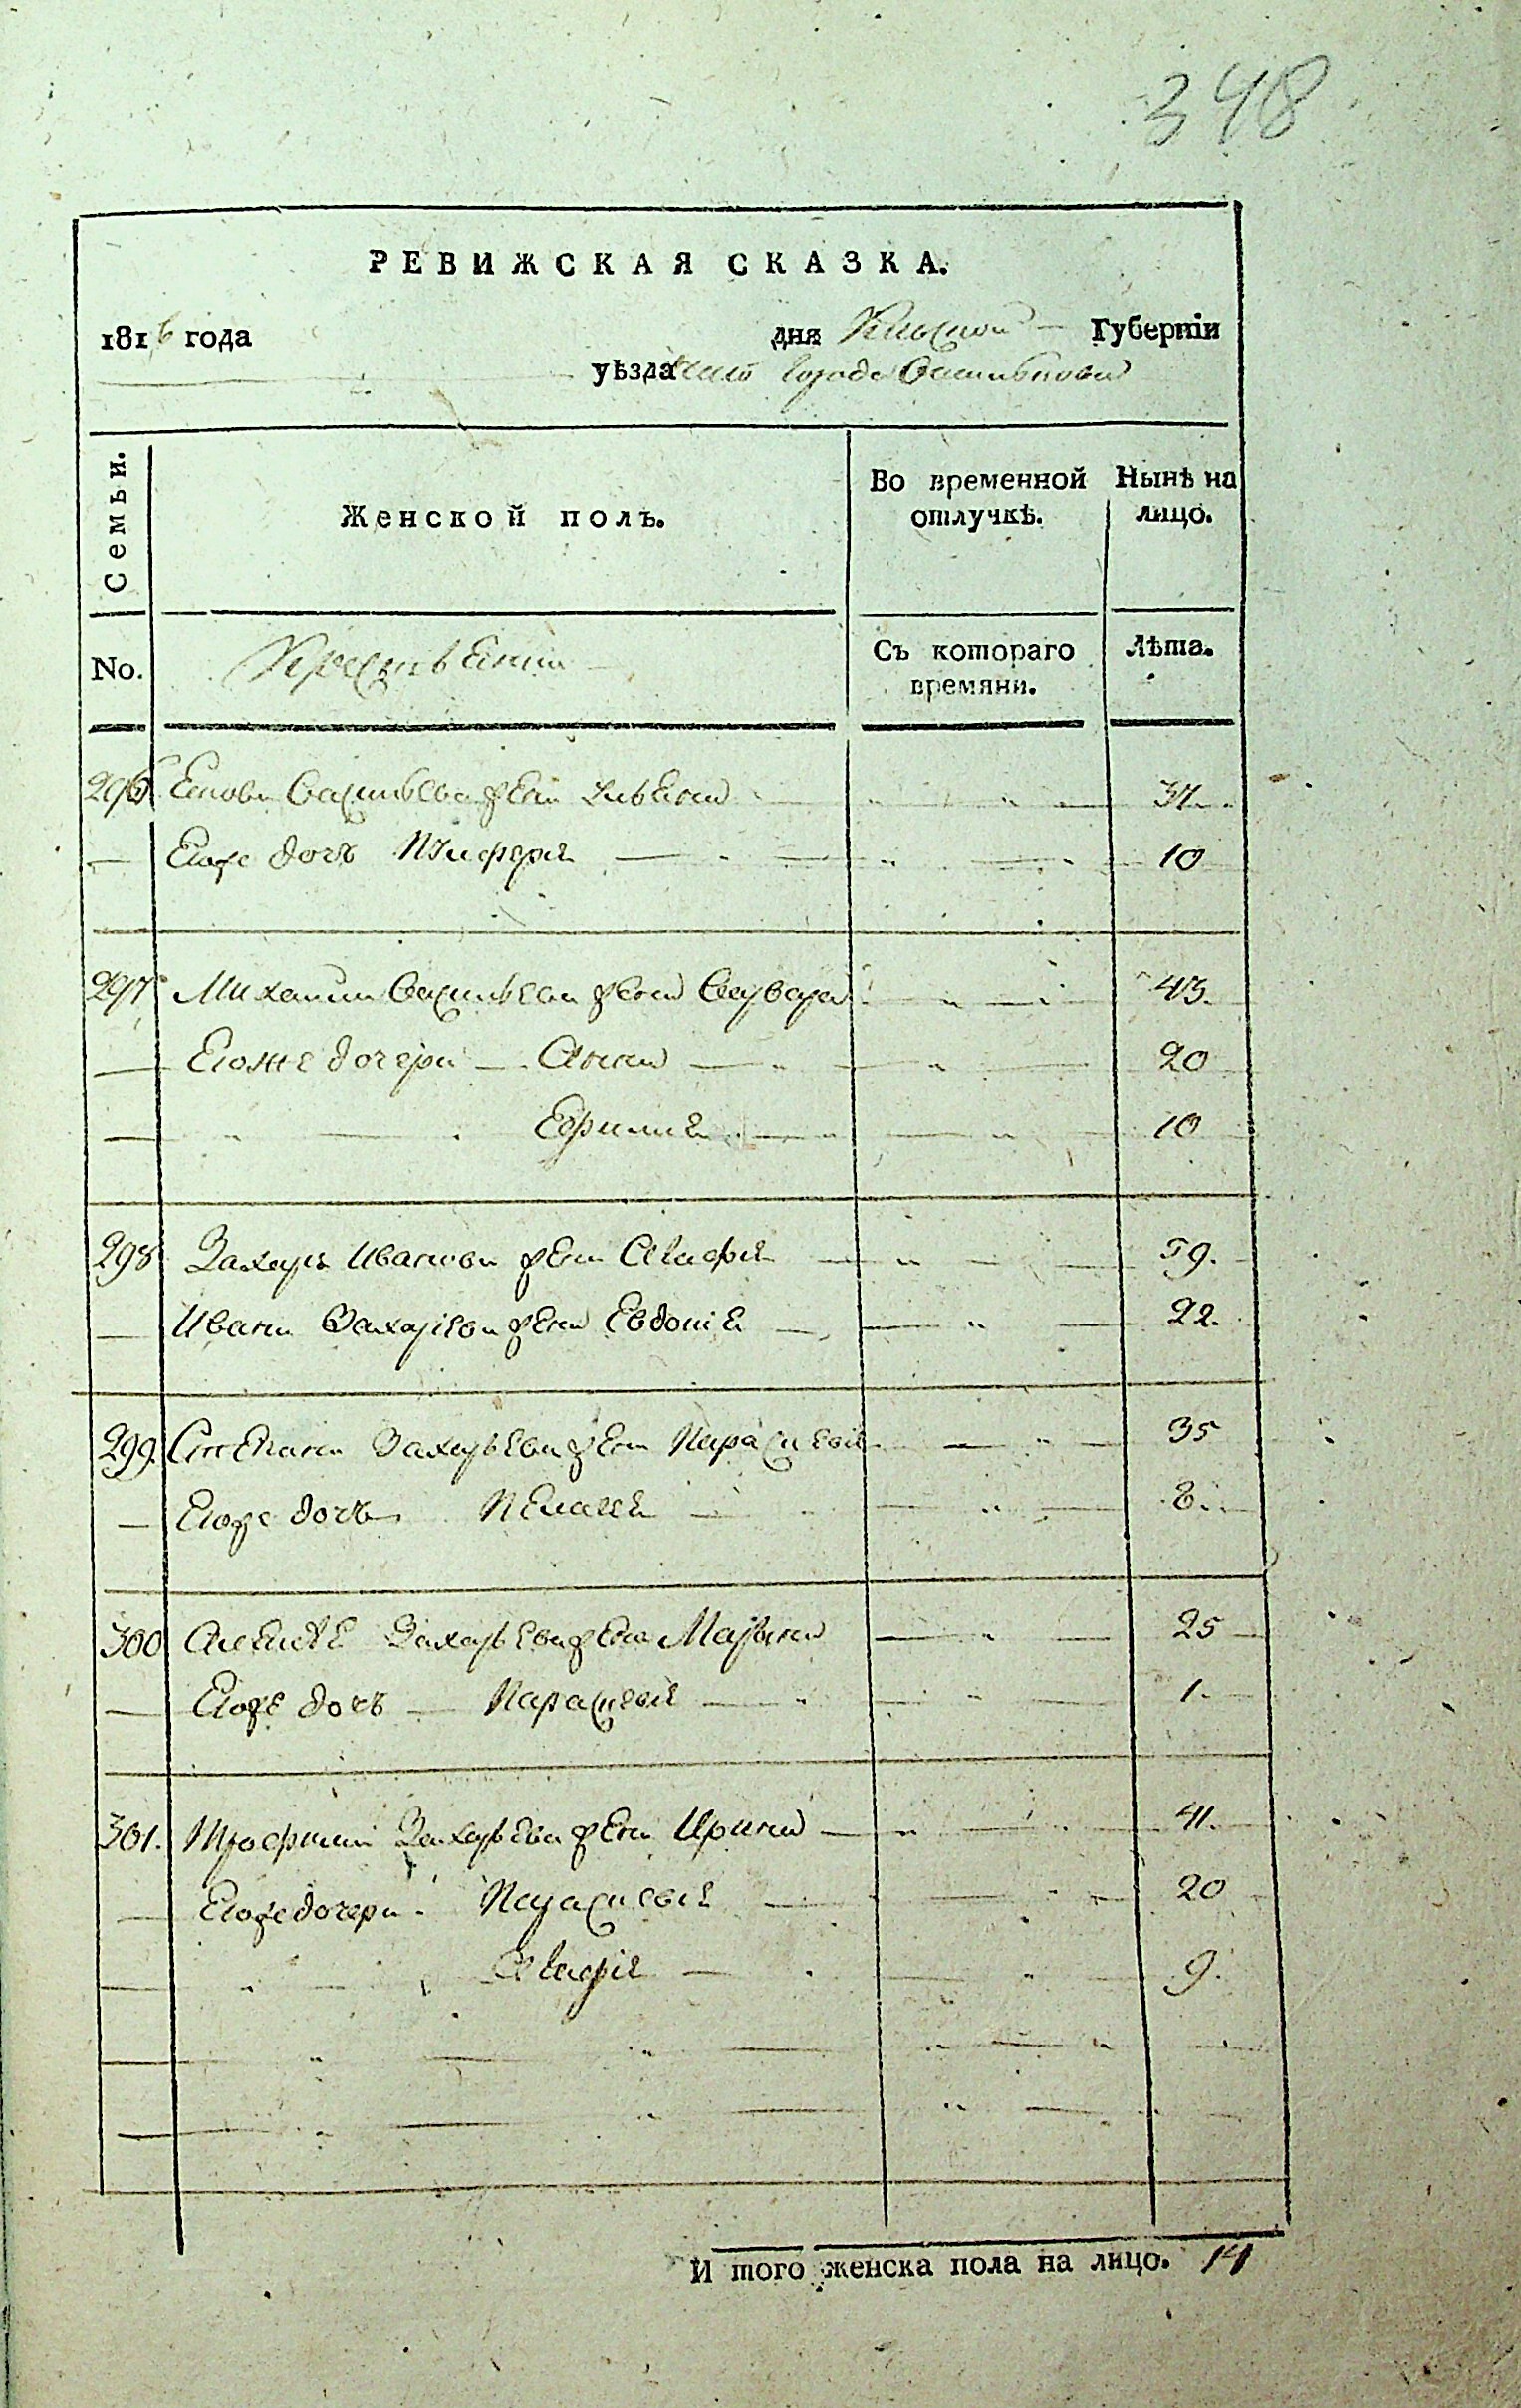 348
РЕВИЖСКАЯ СКАЗКА.
1816 года дня Киевской Губерніи
уѣзда города Василькова
Семьи. Женской полъ. Во временной отлучкѣ. Нынѣ на лицо.
No. Крестьянии Съ котораго времяни. Лѣта.
296 Васильева жена 37
Егоже дочь 10
297 Михаила Васильева жена Варвара 43
Егоже дочери Анна 20
Ефимия 10
298 Захаръ Иванова жена Агафия 59.
Ивана Захарьева жена Евдокия 22.
299. Степана Захарьева жена Параскевия 35
Егоже дочь Пелагея 8
300 Алексѣя Захарьева жена Марьина 25
Егоже дочь Параскевия 1
301. Трофима Захарьева жена Ирина 41.
Егоже дочери Параскевия 20
Агафія 9.
И того женска пола на лицо. 14